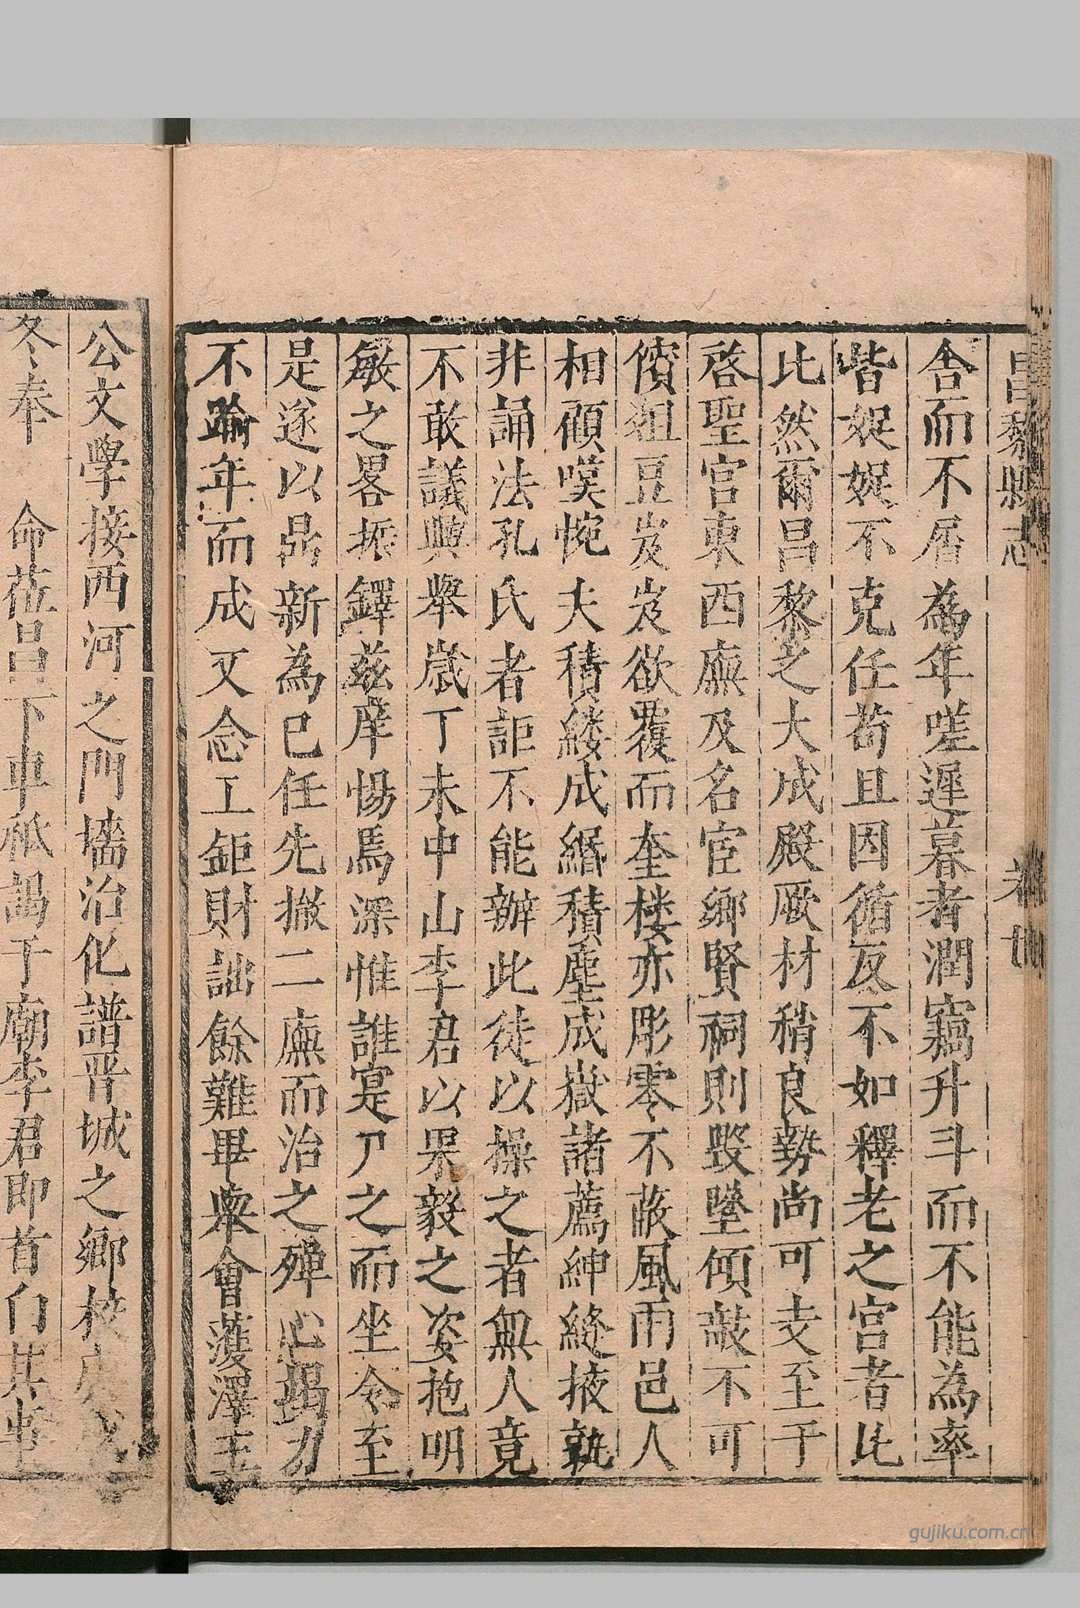 昌黎縣志
舍而不屑為年嗟遲暮者潤竊升斗而不能為率
皆娖娖不克任茍且因循反不如釋老之宮者比
比然爾昌黎之大成殿厥材稍良勢尚可支至于
啓聖宮東西廡及名宦鄉賢祠則毀墜傾敧不可
儐俎豆岌岌欲覆而奎楼亦彫零不蔽風雨邑人
相顧嘆惋夫積縷成緡積塵成嶽諸薦紳縫掖孰
非誦法孔氏者詎不能辦此徒以操之者無人竟
不敢議興舉歲丁未中山李君以果毅之姿抱明
敏之畧振鐸茲庠惕焉深惟誰寔尸之而坐令至
是遂以鼎新為巳任先撤二廡而治之殫心揭力
不踰年而成又念工鉅財詘餘難畢舉會濩澤王
公文學接西河之門墻治化譜晋城之鄉校
冬奉 命蒞昌下車祗謁于廟李君即首白其事
gujiku.com.cn